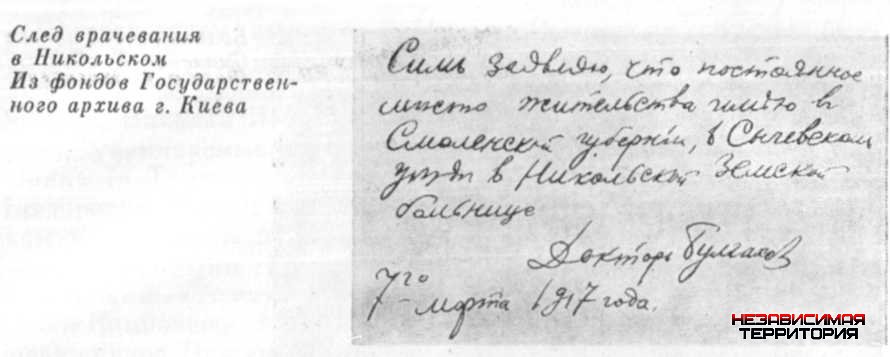 След врачевания
в Никольском
Из фондов Государствен-
ного архива г. Киева
Симъ заявляю, что постоянное
мѣсто жительства имѣю в
Смоленской губернiи, в Сычевском
уѣзде в Никольской Земской
больнице
Докторъ Булгаков
7го марта 1917 года.
НЕЗАВИСИМАЯ
ТЕРРИТОРИЯ